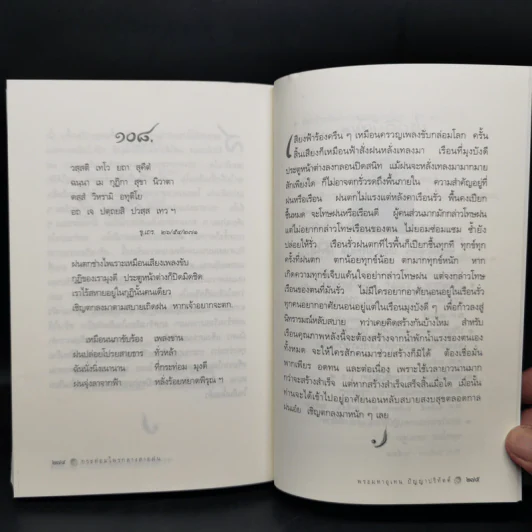 ๑๐๘.
วสฺสติ เทโว ยถา สุคีตํ
ฉนฺนา เม กุฏิกา สุขา นิวาตา
ตสฺสํ วิหรามิ อทุติโย
อถ เจ ปตฺถยสิ ปวสฺส เทว ฯ
ฝนตกช่างไพเราะเหมือนเสียงเพลงขับ
กุฏีของเรามุงดี ประตูหน้าต่างก็ปิดมิดชิด
เราไร้สหายอยู่ในกุฏีนั้นคนเดียว
เชิญตกลงมาตามสบายเถิดฝน หากเจ้าอยากจะตก.
เหมือนนภาขับร้อง เพลงขาน
ฝนปล่อยโปรยสายธาร ทั่วหล้า
ฉันนั่งนิ่งเนานาน ที่กระท่อม มุงดี
ฝนจุ่งลาจากฟ้า หลั่งร้อยหยาดพิรุณ ฯ
๒๓๔
เสียงฟ้าร้องครืน ๆ เหมือนครวญเพลงขับกล่อมโลก ครั้น
สิ้นเสียงก็เหมือนฟ้าสั่งฝนหลั่งเทลงมา เรือนที่มุงบังดี
ประตูหน้าต่างลงกลอนปิดสนิท แม้ฝนจะหลั่งเทลงมามากมาย
สักเพียงใด ก็ไม่อาจตกรั่วรดถึงพื้นภายใน ความสำคัญอยู่ที่
ฝนหรือเรือน ฝนตกไม่แรงแต่หลังคาเรือนรั่ว พื้นคงเปียก
ชื้นหมด จะโทษฝนหรือเรือนดี ผู้คนส่วนมากมักกล่าวโทษฝน
แต่ไม่อยากกล่าวโทษเรือนของตน ไม่ยอมซ่อมแซม ซ้ำยัง
ปล่อยให้รั่ว เรือนรั่วฝนตกทีไรพื้นก็เปียกชื้นทุกที ทุกข์ทุก
ครั้งที่ฝนตก ตกน้อยทุกข์น้อย ตกมากทุกข์หนัก หาก
เกิดความทุกข์เจ็บแค้นใจอย่ากล่าวโทษฝน แต่จงกล่าวโทษ
เรือนของตนที่มันรั่ว ไม่มีใครอยากอาศัยนอนอยู่ในเรือนรั่ว
ทุกคนอยากอาศัยนอนอยู่แต่ในเรือนมุงบังดี ๆ เพื่อก้าวลงสู่
นิทรารมณ์หลับสบาย ทว่าเคยคิดสร้างกันบ้างไหม สำหรับ
เรือนคุณภาพหลังนี้จะต้องสร้างจากน้ำพักน้ำแรงของตนเอง
ทั้งหมด จะให้ใครสักคนมาช่วยสร้างก็มิได้ ต้องเชื่อมั่น
พากเพียร อดทน และต่อเนื่อง เพราะใช้เวลายาวนานมาก
กว่าจะสร้างสำเร็จ แต่หากสร้างสำเร็จเสร็จสิ้นเมื่อใด เมื่อนั้น
ท่านจะได้เข้าไปอยู่อาศัยนอนหลับสบายสงบสุขตลอดกาล
ฝนเอ๋ย เชิญตกลงมาหนัก ๆ เลย
๒๓๕